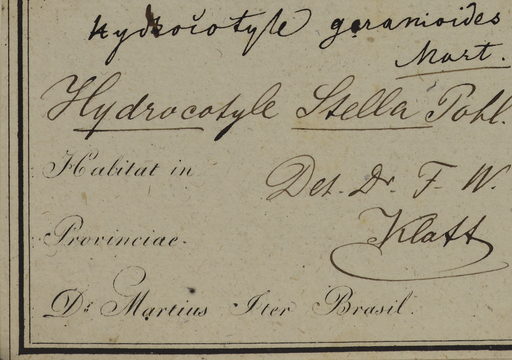 Hydrocotyle geranioides
Mart.
Hydrocotyle Stella Pohl.
Habitat in
Det. Dr. F. W.
Klatt
Provinciae.
Dr. Martius Iter Brasil.